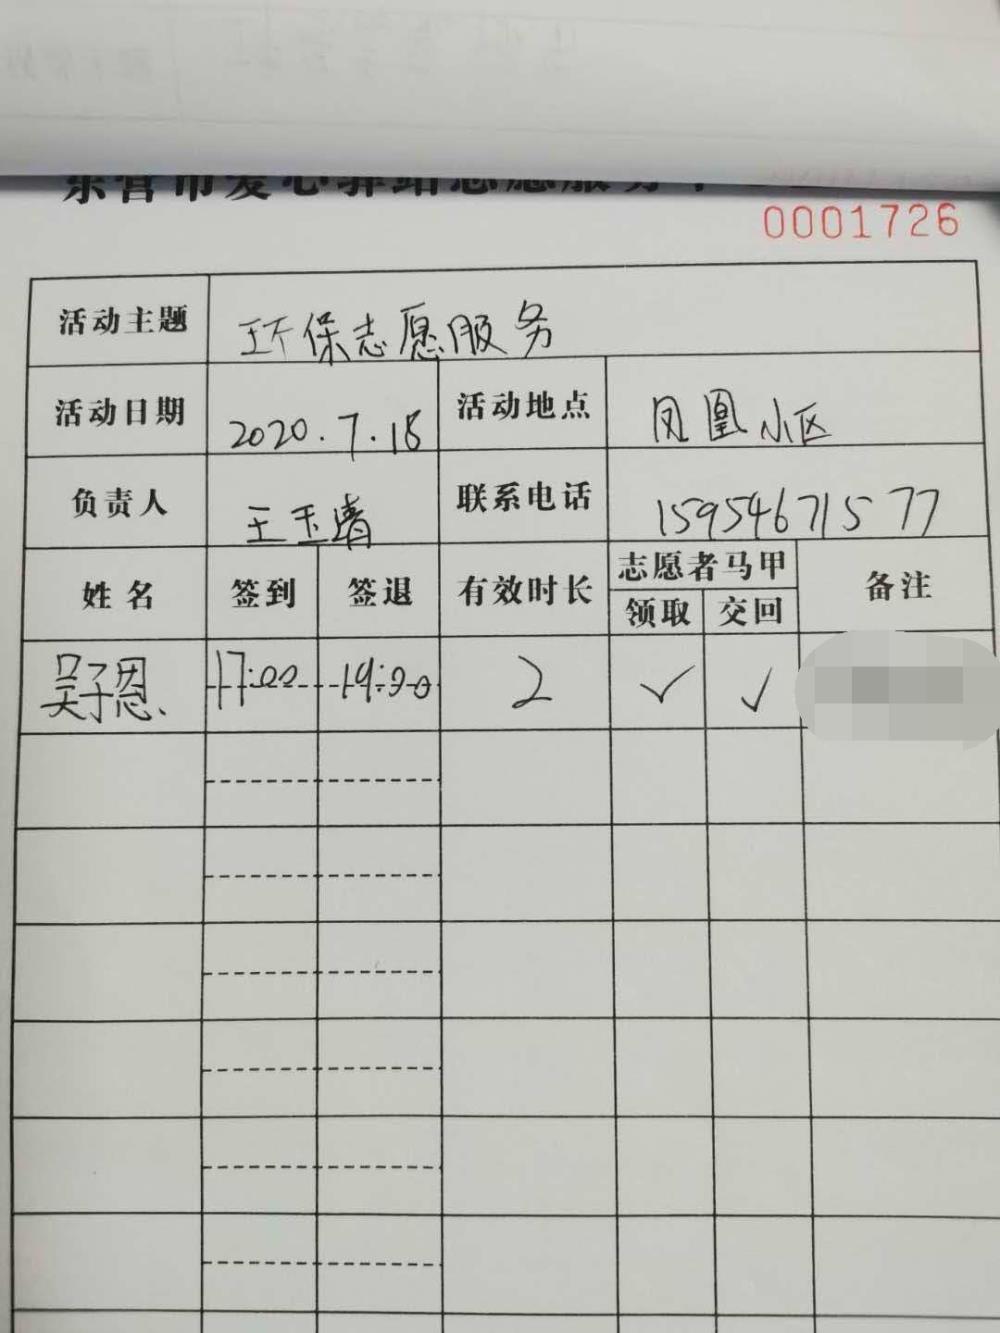 东营市爱心驿站志愿服务
0001726
活动主题 环保志愿服务
活动日期 2020.7.18 活动地点 凤凰小区
负责人 王玉清 联系电话 15954671577
姓名 签到 签退 有效时长 志愿者马甲 备注
领取 交回
吴子恩 17:00 19:00 2 ✓ ✓